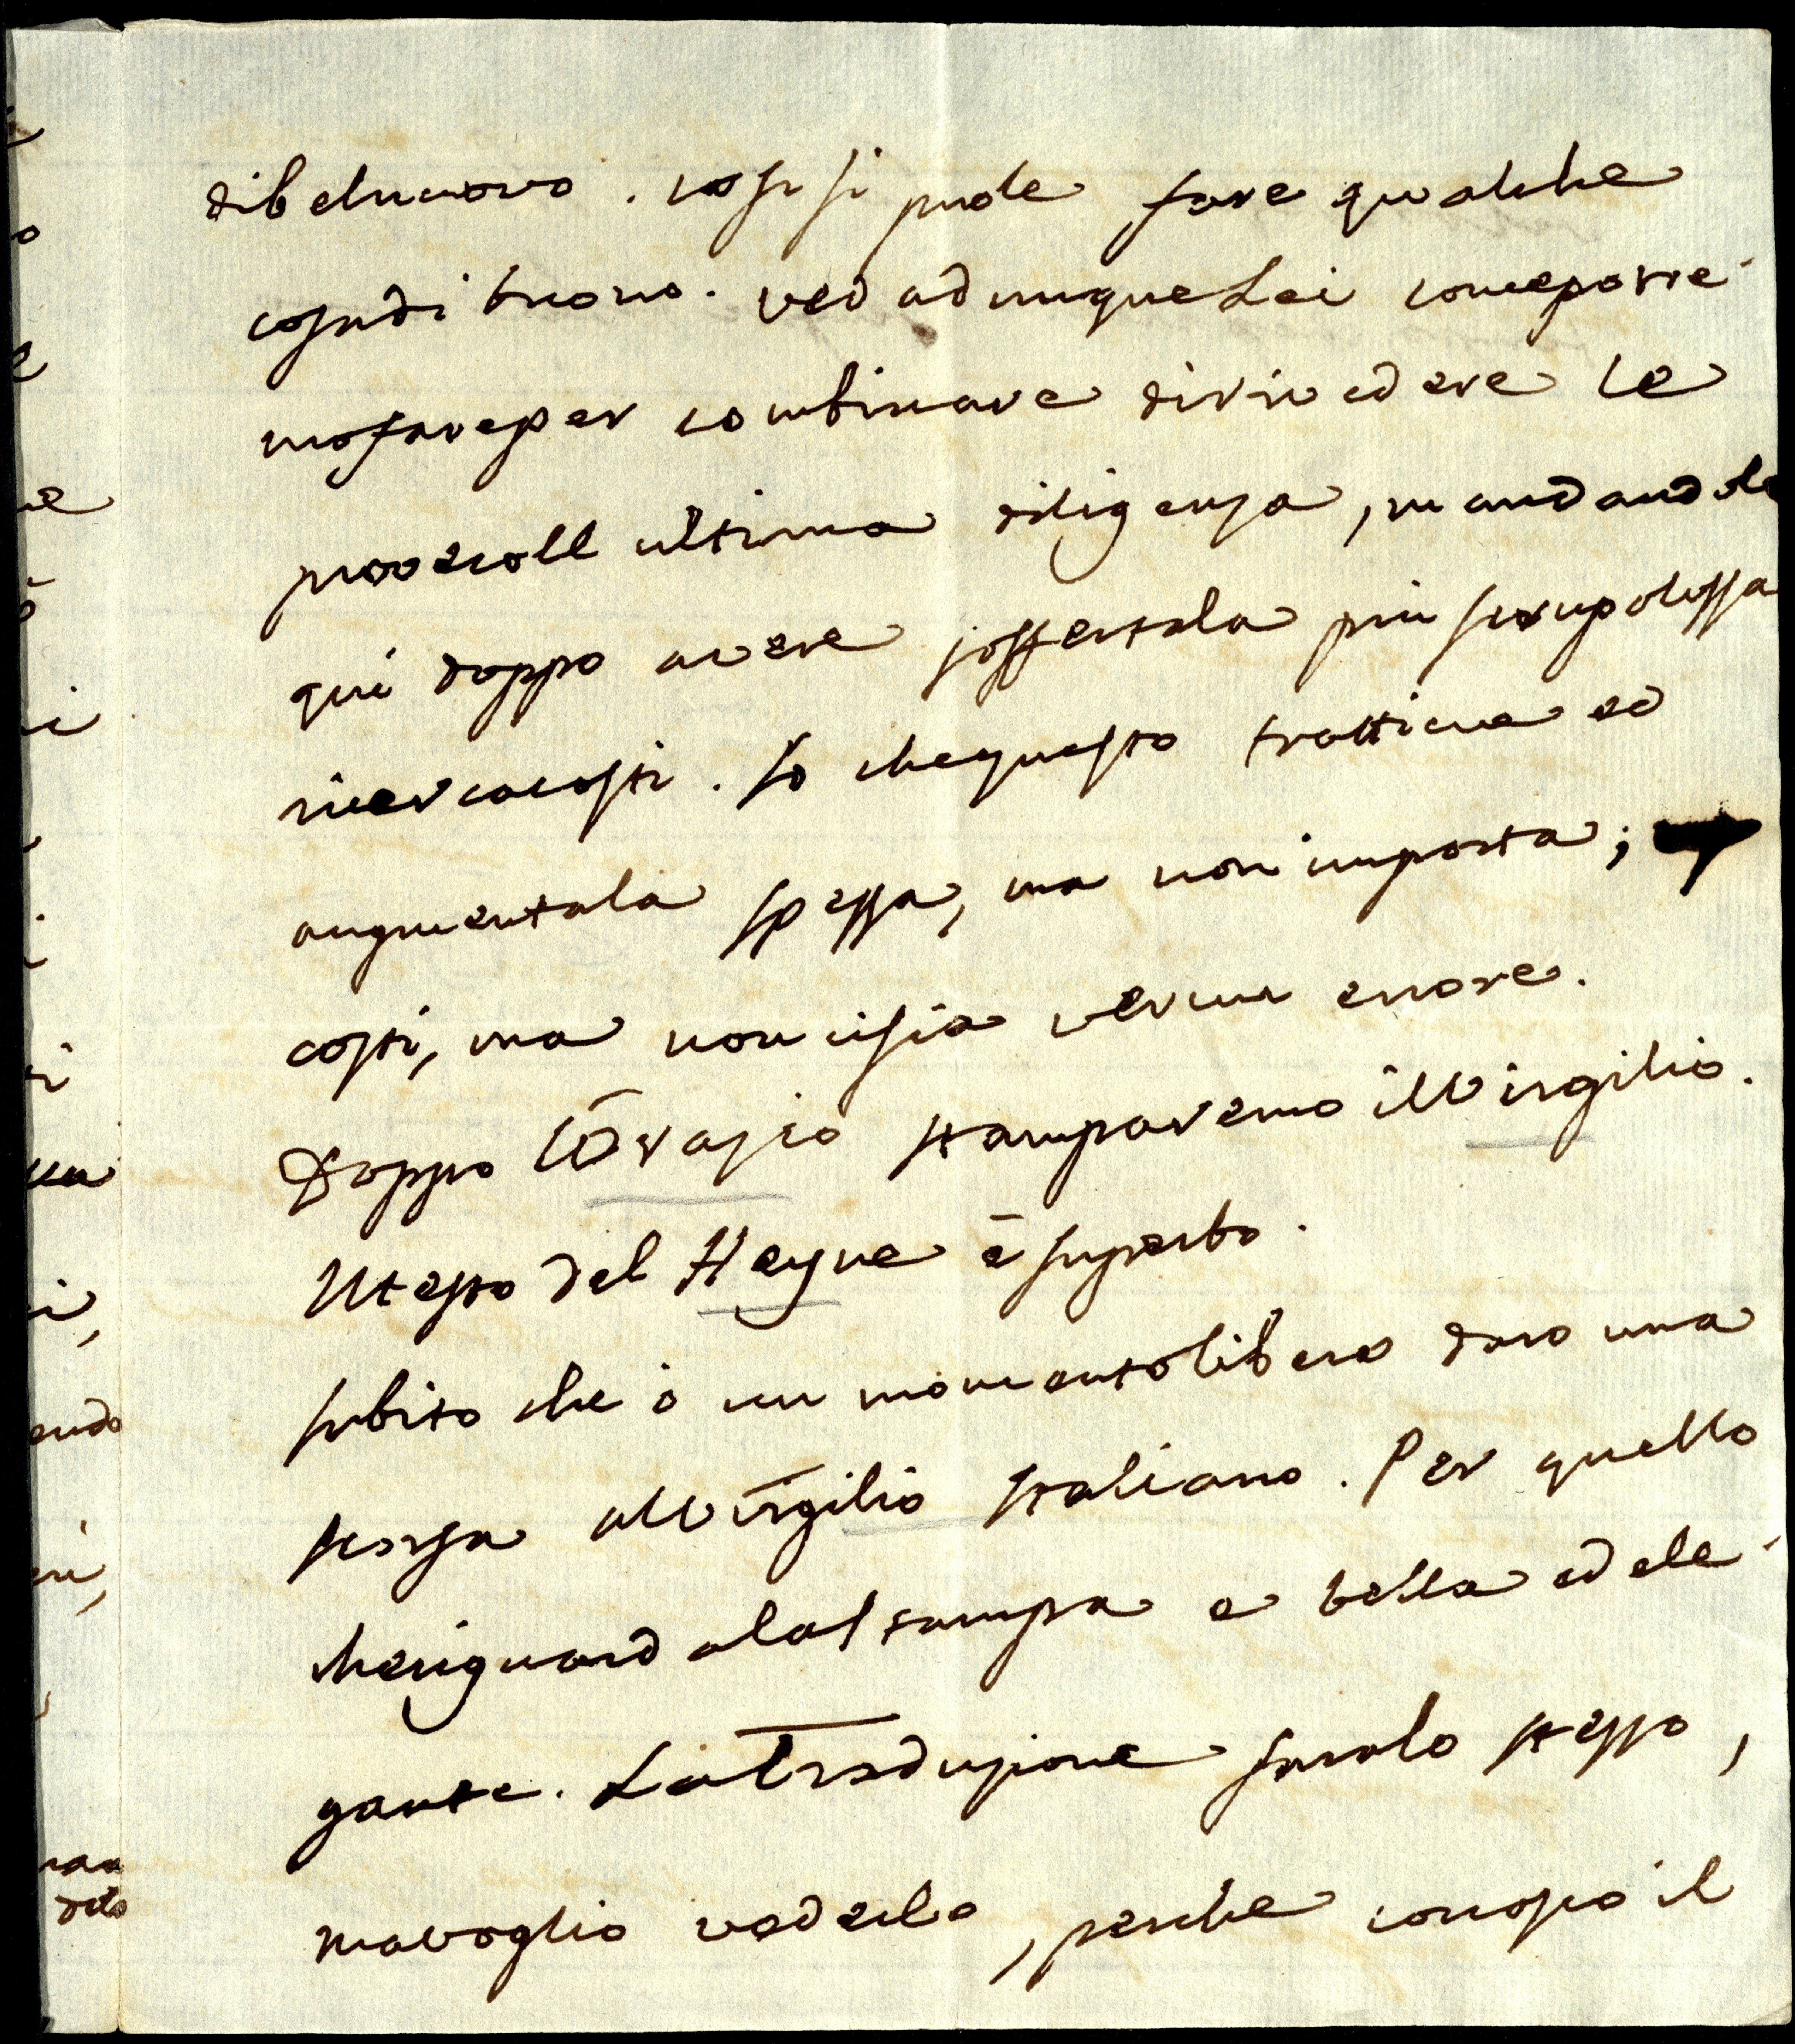 di bel nuovo. così si puole fare qualche
cosa di buono. veda dunque Lei come potre-
mo fare per combinare di rivedere le
prove coll ultima diligenza, mandandole
qui doppo avere sofferta la più scrupolossa
ricerca costì. So che questo trattiene ed
augmenta la spessa, ma non importa;
costi, ma non ci sia verun errore.
Doppo l'Orazio stamparemo il Virgilio.
Il testo del Heyne è superbo.
subito che ò un momento libero daro una
scorsa all Virgilio Italiano. Per quello
che riguarda la stampa e bella ed ele-
gante. La Traduzione sara lo stesso,
ma voglio vederla, perche conosco il